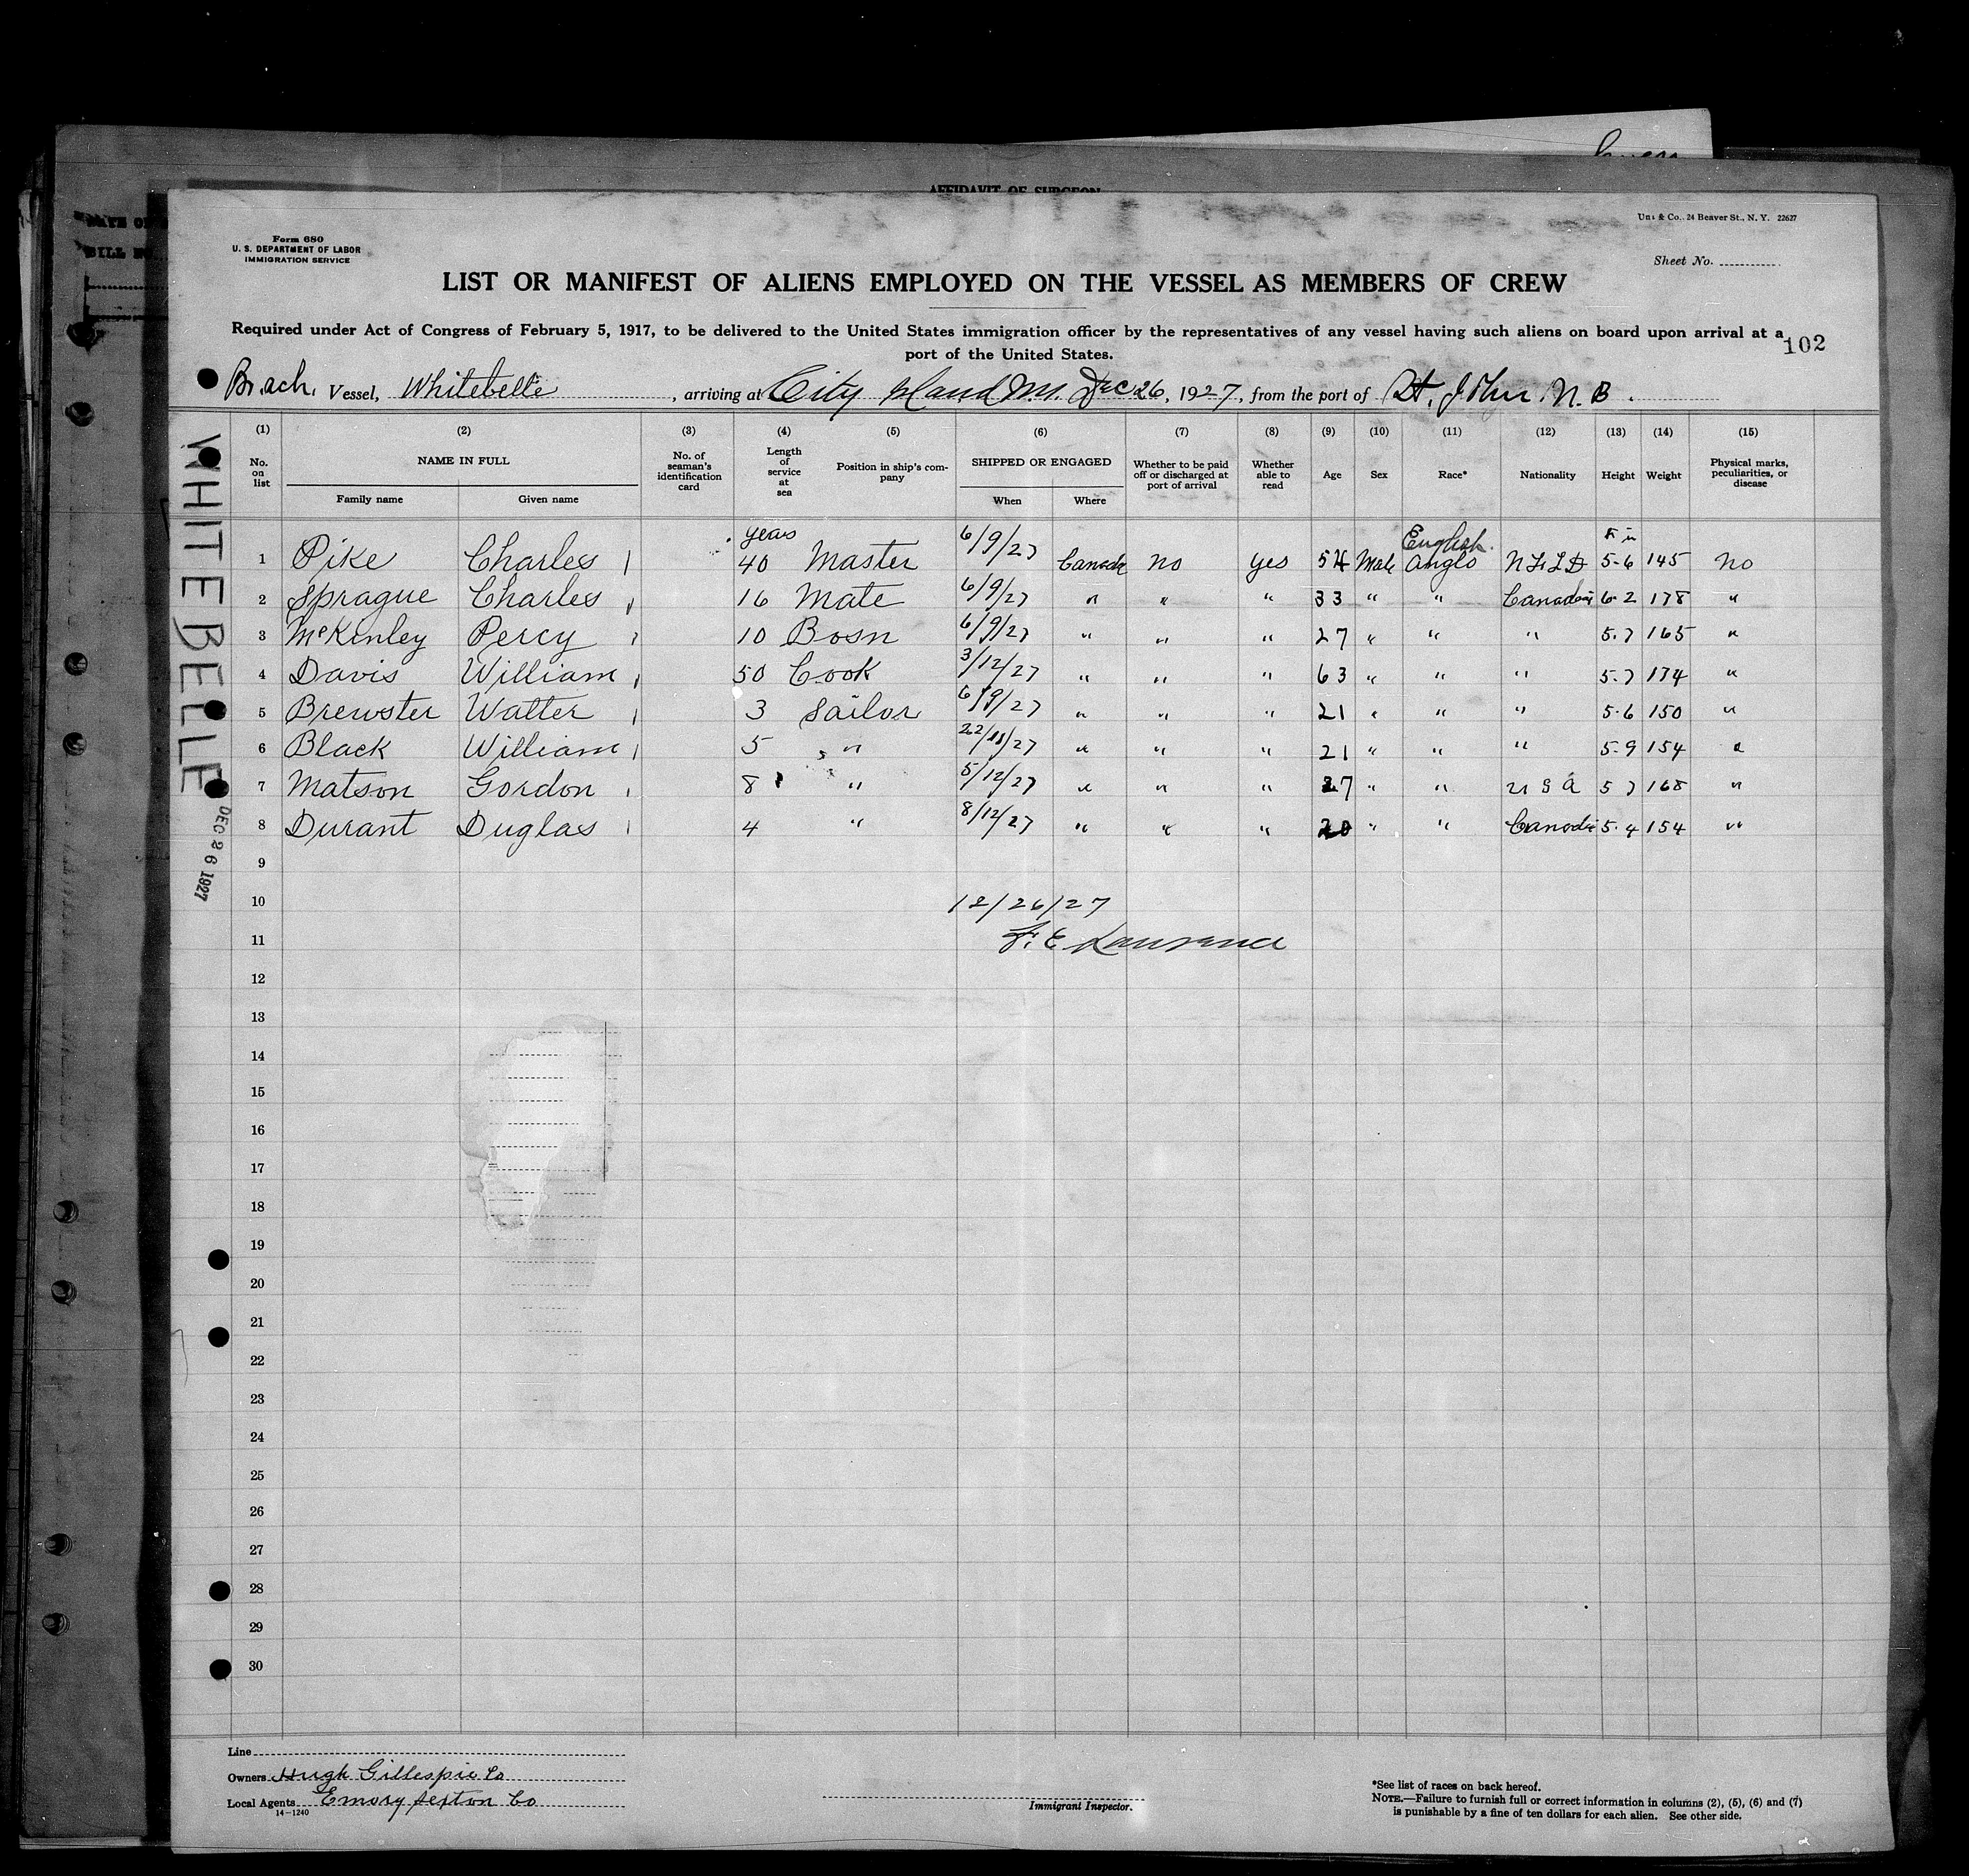 AFFIDAVIT OF SURGEON
& Co., 24 Beaver St., N. Y. 22627
Form 680
U. S. DEPARTMENT OF LABOR
IMMIGRATION SERVICE
Sheet No.
LIST OR MANIFEST OF ALIENS EMPLOYED ON THE VESSEL AS MEMBERS OF CREW
Required under Act of Congress of February 5, 1917, to be delivered to the United States immigration officer by the representatives of any vessel having such aliens on board upon arrival at a
port of the United States.
102
Br. sch. Vessel, Whitebelle, arriving at City Island N.Y. Dec 26, 1927, from the port of St. John N. B.
(1) (2) (3) (4) (5) (6) (7) (8) (9) (10) (11) (12) (13) (14) (15)
No. on list NAME IN FULL Family name Given name No. of seaman's identification card Length of service at sea Position in ship's company SHIPPED OR ENGAGED When Where Whether to be paid off or discharged at port of arrival Whether able to read Age Sex Race* Nationality Height Weight Physical marks, peculiarities, or disease
years English F in
1 Pike Charles 40 Master 6/9/27 Canada no yes 54 Male Anglo NFLD 5-6 145 no
2 Sprague Charles 16 Mate 6/9/27 " " " 33 " " Canadian 6-2 178 "
3 McKinley Percy 10 Bosn 6/9/27 " " " 27 " " " 5.7 165 "
4 Davis William 50 Cook 3/12/27 " " " 63 " " " 5.7 174 "
5 Brewster Walter 3 Sailor 6/9/27 " " " 21 " " " 5.6 150 "
6 Black William 5 " 22/11/27 " " " 21 " " " 5.9 154 "
7 Matson Gordon 8 " 5/12/27 " " " 27 " " U S A 5 7 168 "
8 Durant Duglas 4 " 8/12/27 " " " 20 " " Canada 5.4 154 "
9
10 12/26/27
11 F. E. Lawrance
12
13
14
15
16
17
18
19
20
21
22
23
24
25
26
27
28
29
30
WHITEBELLE
DEC 26 1927
Line
Owners Hugh Gillespie Co
Local Agents Emory Sexton Co
14-1240
Immigrant Inspector.
*See list of races on back hereof.
NOTE.—Failure to furnish full or correct information in columns (2), (5), (6) and (7)
is punishable by a fine of ten dollars for each alien. See other side.